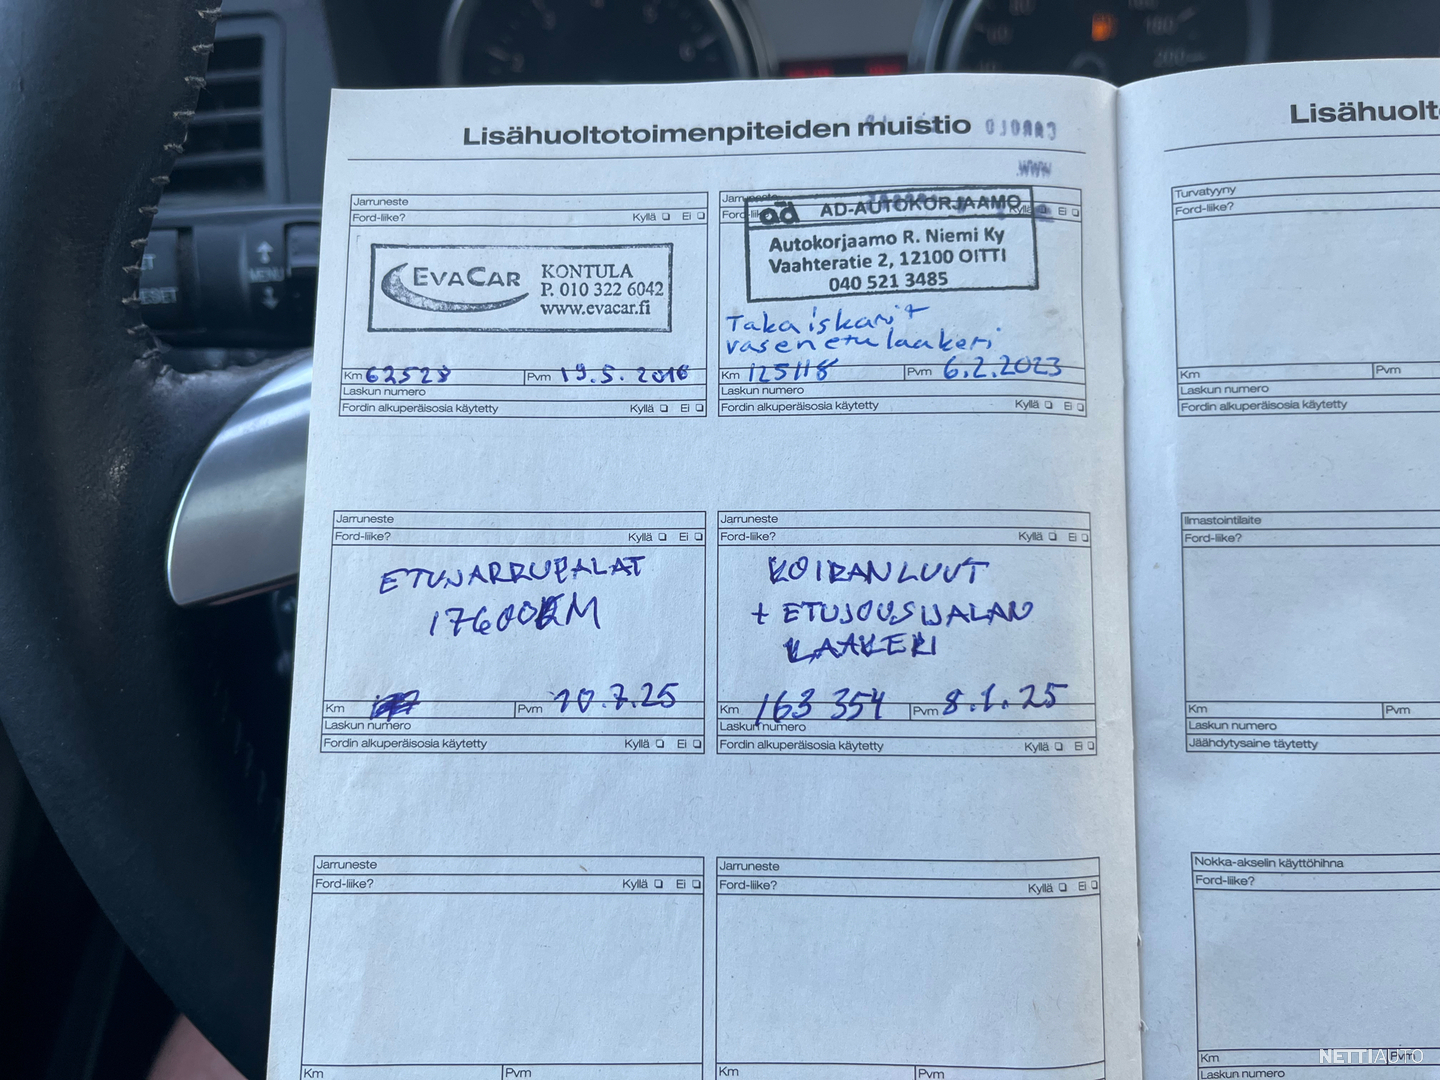 Lisähuoltotoimenpiteiden muistio
Jarruneste
Ford-liike? Kyllä Ei
EVACAR
KONTULA
P. 010 322 6042
www.evacar.fi
Km 62528 Pvm 19.5.2016
Laskun numero
Fordin alkuperäisosia käytetty Kyllä Ei
Jarruneste
Ford-liike? Kyllä Ei
ad AD-AUTOKORJAAMO
Autokorjaamo R. Niemi Ky
Vaahteratie 2, 12100 OITTI
040 521 3485
Taka iskarit
vasen etu laakeri
Km 125118 Pvm 6.2.2023
Laskun numero
Fordin alkuperäisosia käytetty Kyllä Ei
Jarruneste
Ford-liike? Kyllä Ei
ETUJARRUPALAT
176000KM
Km Pvm 10.7.25
Laskun numero
Fordin alkuperäisosia käytetty Kyllä Ei
Jarruneste
Ford-liike? Kyllä Ei
KOIRANLUUT
+ ETUJOUSIJALAN
LAAKERI
Km 163 354 Pvm 8.1.25
Laskun numero
Fordin alkuperäisosia käytetty Kyllä Ei
Jarruneste
Ford-liike? Kyllä Ei
Km Pvm
Jarruneste
Ford-liike? Kyllä Ei
Km Pvm
Lisähuolt
Turvatyyny
Ford-liike?
Km Pvm
Laskun numero
Fordin alkuperäisosia käytetty
Ilmastointilaite
Ford-liike?
Km Pvm
Laskun numero
Jäähdytysaine täytetty
Nokka-akselin käyttöhihna
Ford-liike?
Km Pvm
Laskun numero
NETTIAUTO